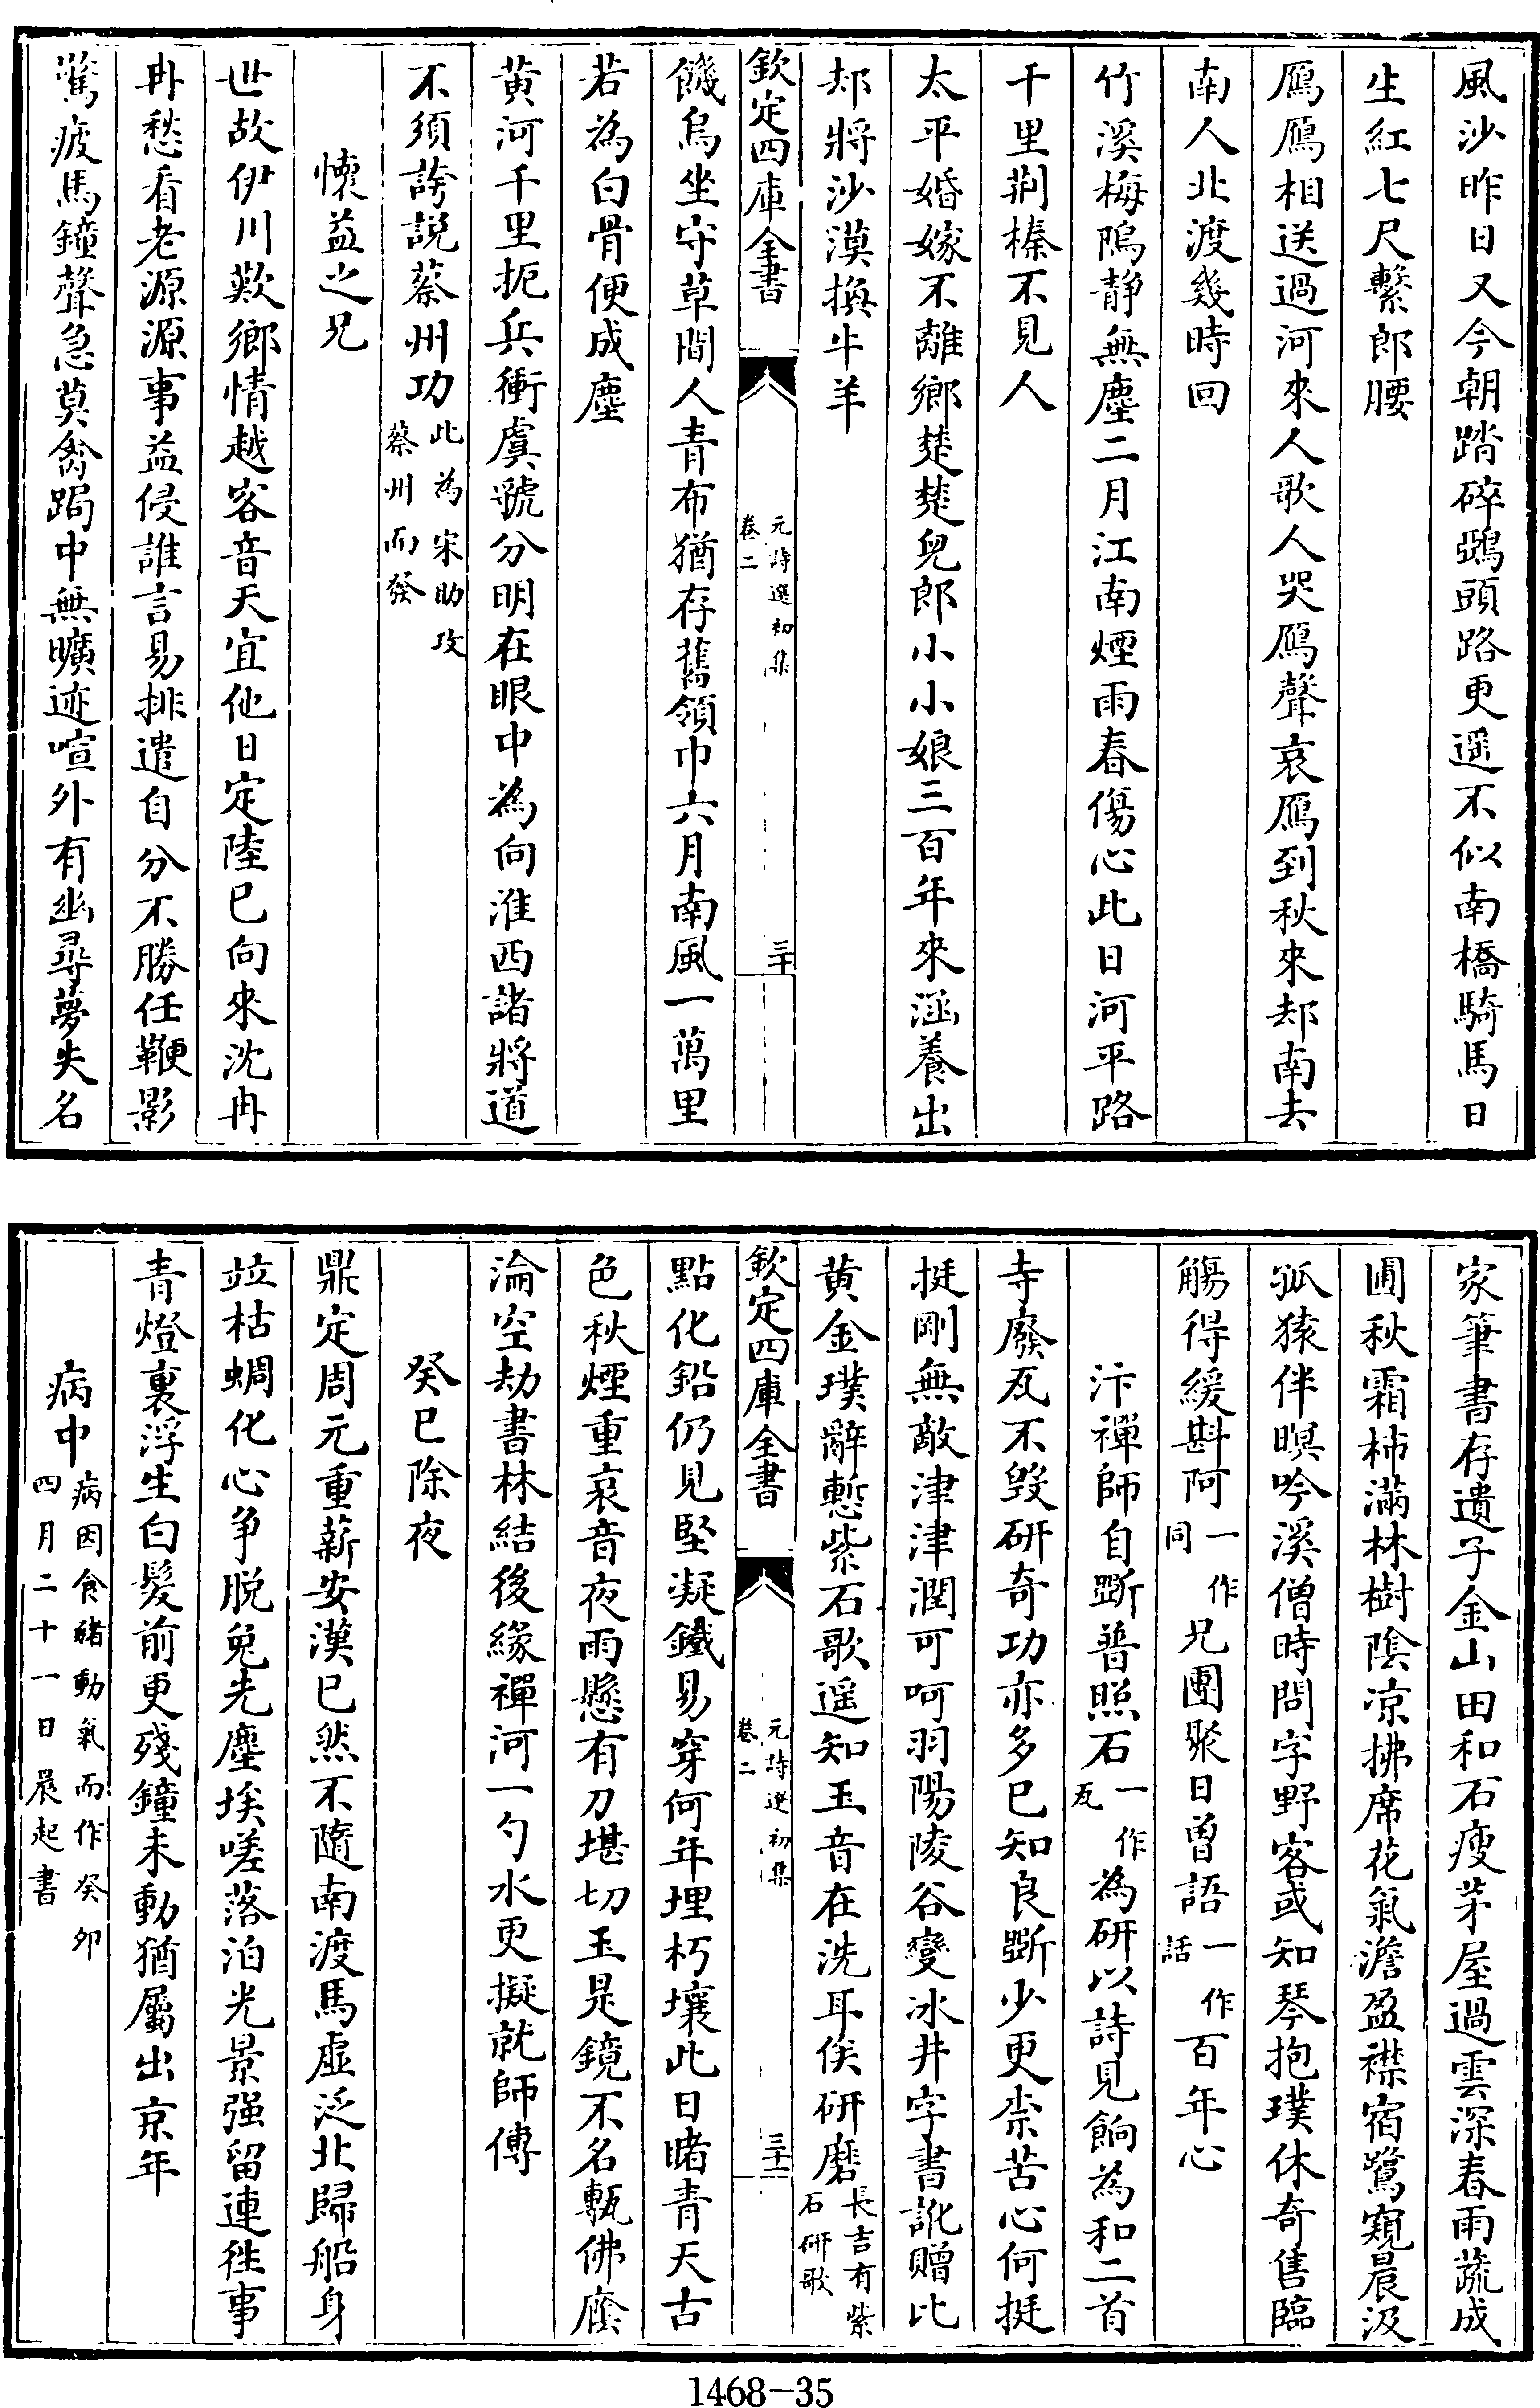 風沙昨日又今朝踏碎鵶頭路更遥不似南橋騎馬日
生紅七尺繫郎腰
雁雁相送過河來人歌人哭雁聲哀雁到秋來却南去
南人北渡幾時回
竹溪梅塢静無塵二月江南煙雨春傷心此日河平路
千里荆榛不見人
太平婚嫁不離鄉楚楚兒郎小小娘三百年來涵養出
却將沙漠換牛羊
欽定四庫全書
元詩選初集
卷二
三十
饑烏坐守草間人青布猶存舊領巾六月南風一萬里
若為白骨便成塵
黄河千里扼兵衝虞虢分明在眼中為向淮西諸將道
不須誇說蔡州功此為宋助攻
蔡州而發
懷益之兄
世故伊川歎鄉情越客音天宜他日定陸已向來沈冉
冉愁看老源源事益侵誰言易排遣自分不勝任鞭影
驚疲馬鐘聲急莫禽跼中無曠迹喧外有幽尋夢失名
家筆書存遺子金山田和石瘦茅屋過雲深春雨蔬成
圃秋霜柿滿林樹陰凉拂席花氣澹盈襟宿鷺窺晨汲
孤猿伴暝吟溪僧時問字野客或知琴抱璞休奇售臨
觴得緩斟阿一作
同兄團聚日曾語一作
話百年心
汴禪師自斲普照石一作
瓦為研以詩見餉為和二首
寺廢瓦不毁研奇功亦多已知良斲少更柰苦心何挺
挺剛無敵津津潤可呵羽陽陵谷變冰井字書訛贈比
黄金璞辭慙紫石歌遥知玉音在洗耳俟研磨長吉有紫
石研歌
欽定四庫全書
元詩選初集
卷二
三十一
點化鉛仍見堅凝鐵易穿何年埋朽壤此日睹青天古
色秋煙重哀音夜雨懸有刀堪切玉是鏡不名甎佛廕
淪空劫書林結後緣禪河一勺水更擬就師傳
癸巳除夜
鼎定周元重薪安漢已然不隨南渡馬虚泛北歸船身
竝枯蜩化心争脱兔先塵埃嗟落泊光景强留連徃事
青燈裏浮生白髪前更殘鐘未動猶屬出京年
病中病因食豬動氣而作癸卯
四月二十一日晨起書
1468-35